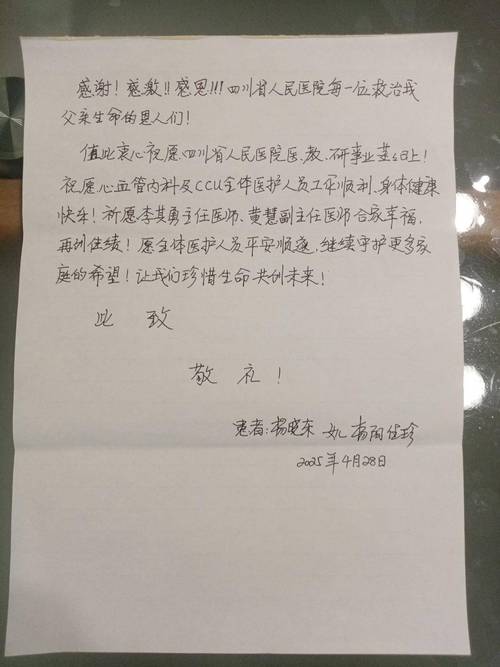 感谢！感激!!感恩!!!四川省人民医院每一位救治我
父亲生命的恩人们！
值此衷心祝愿四川省人民医院医、教、研事业蒸蒸日上！
祝愿心血管内科及CCU全体医护人员工作顺利、身体健康
快乐！祈愿李其勇主任医师、黄慧副主任医师合家幸福，
再创佳绩！愿全体医护人员平安顺遂，继续守护更多家
庭的希望！让我们珍惜生命共创未来！
此 致
敬 礼！
患者：杨晓东 女儿 杨阳佳珍
2025年4月28日